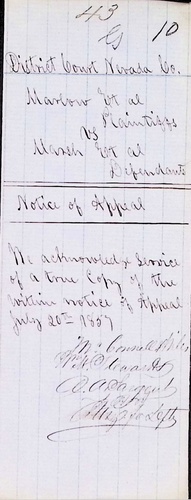 43
10
District Court Nevada Co.
Marlow Et al
Plaintiffs
vs
Marsh Et al
Defendants
Notice of Appeal
We acknowledge Service
of a true Copy of the
within notice of Appeal
July 20th 1857
McConnell &
Stewart
A. A. Sargent
Attys for Defts